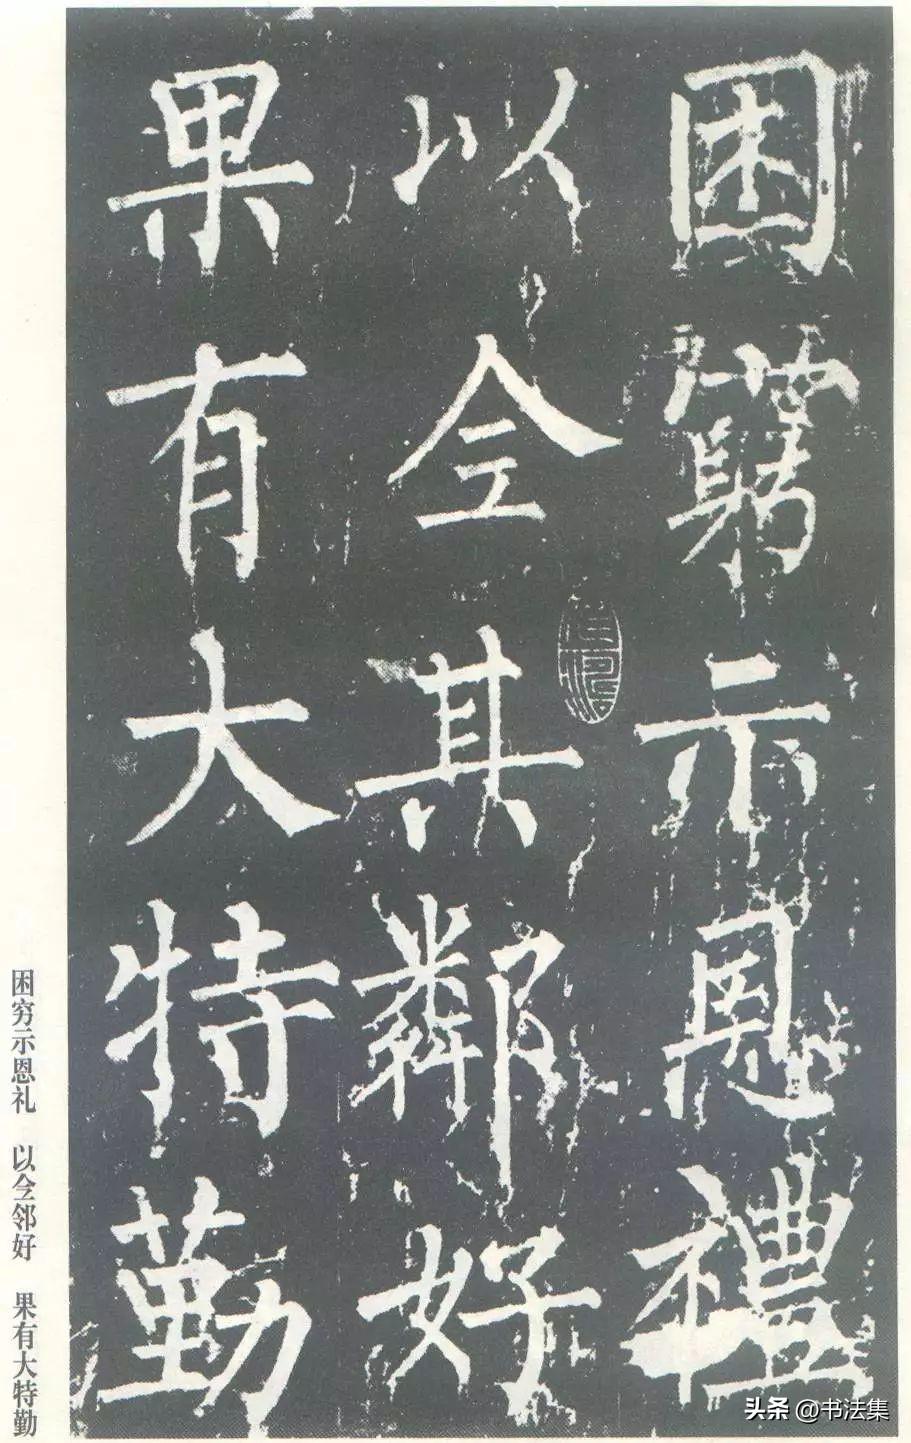 困窮示恩禮
以仝其鄰好
果有大特勤
困穷示恩礼 以仝邻好 果有大特勤
头条 @书法集